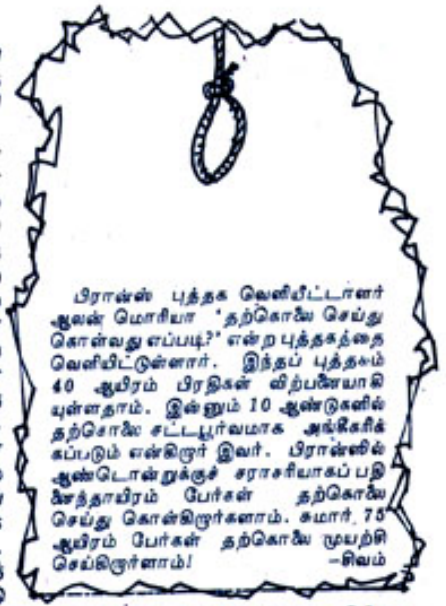 பிரான்ஸ் புத்தக வெளியீட்டாளர்
ஆலன் மொரியா 'தற்கொலை செய்து
கொள்வது எப்படி?' என்ற புத்தகத்தை
வெளியிட்டுள்ளார். இந்தப் புத்தகம்
40 ஆயிரம் பிரதிகள் விற்பனையாகி
யுள்ளதாம். இன்னும் 10 ஆண்டுகளில்
தற்கொலை சட்டபூர்வமாக அங்கீகரிக்
கப்படும் என்கிறார் இவர். பிரான்ஸில்
ஆண்டொன்றுக்குச் சராசரியாகப் பதி
னைந்தாயிரம் பேர்கள் தற்கொலை
செய்து கொள்கிறார்களாம். சுமார் 75
ஆயிரம் பேர்கள் தற்கொலை முயற்சி
செய்கிறார்ளாம்!
-சிவம்